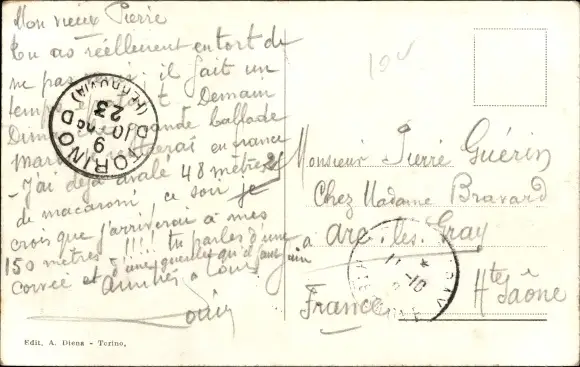 Mon vieux Pierre
Tu as réellement eu tort de
ne pas il fait un
temps Demain
Dimanche grande ballade
Mardi en France
- J'ai déjà avalé 48 mètres
de macaroni, ce soir je
crois que j'arriverai à mes
150 mètres !!!! tu parles d'une
corvée et d'une gueule qu'il faut
Amitiés à tous
Louis
TORINO
(FERROVIA)
9
10
23
Monsieur Pierre Guérin
Chez Madame Bravard
à Arc-les-Gray
Hte Saône
France
Edit. A. Diena - Torino.